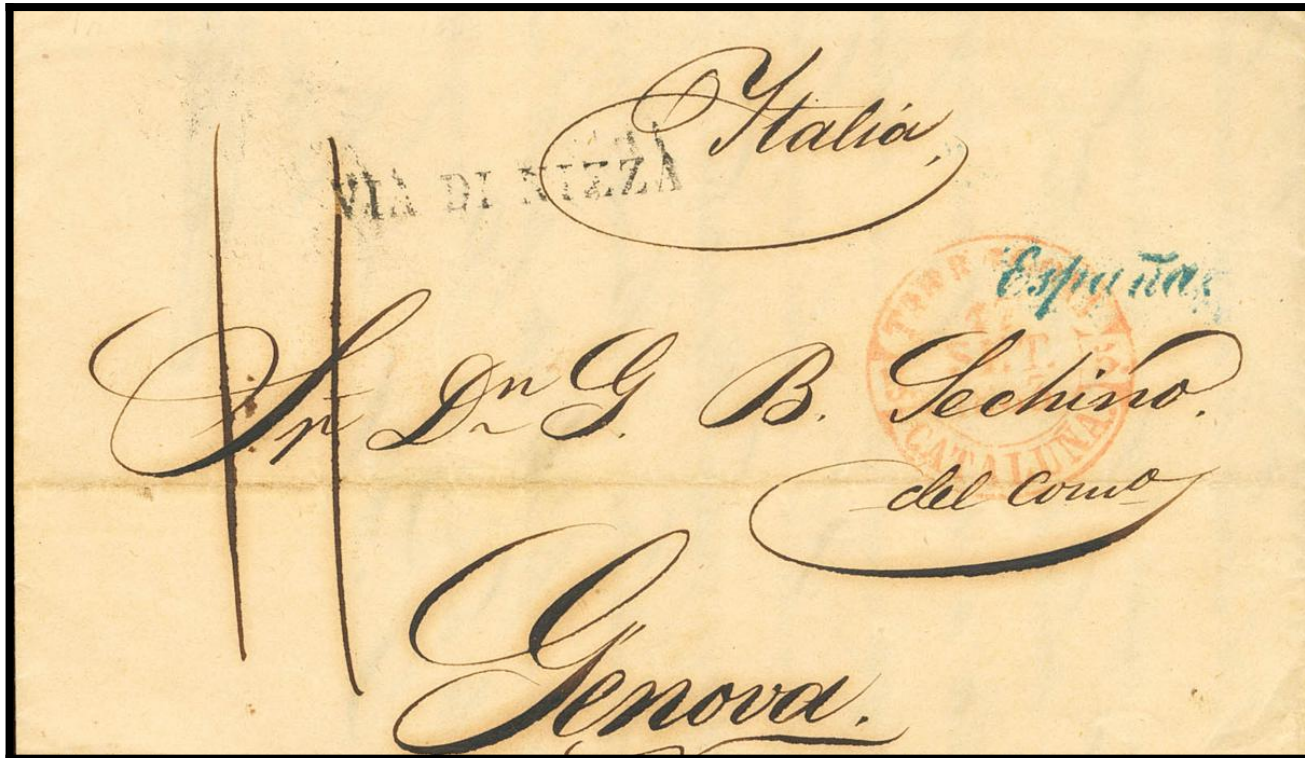 Italia,
VIA DI NIZZA
España.
SET.
CATALUÑA
Sr. Dn. G. B. Sechino.
del Como
Genova.